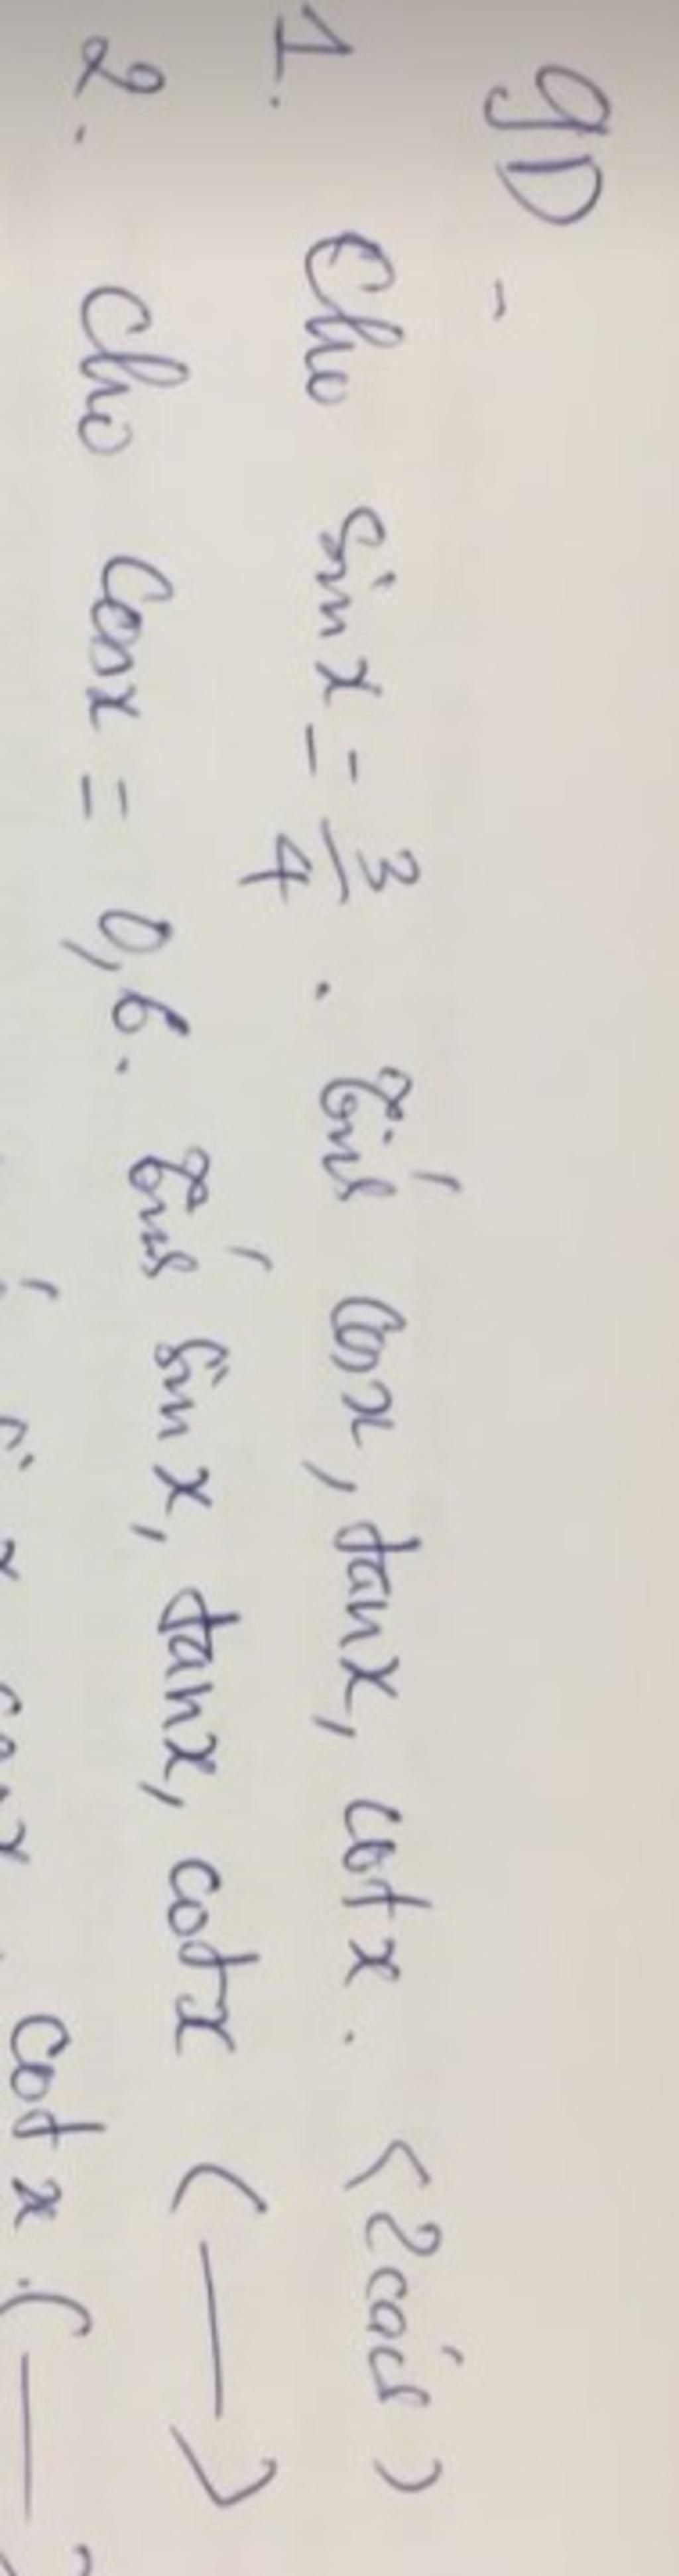 9D -
1. Cho sin x = 3/4 . Tính cos x, tan x, cot x . (2 cách)
2. Cho cos x = 0,6. Tính sin x, tan x, cot x ( — )
cot x . ( —